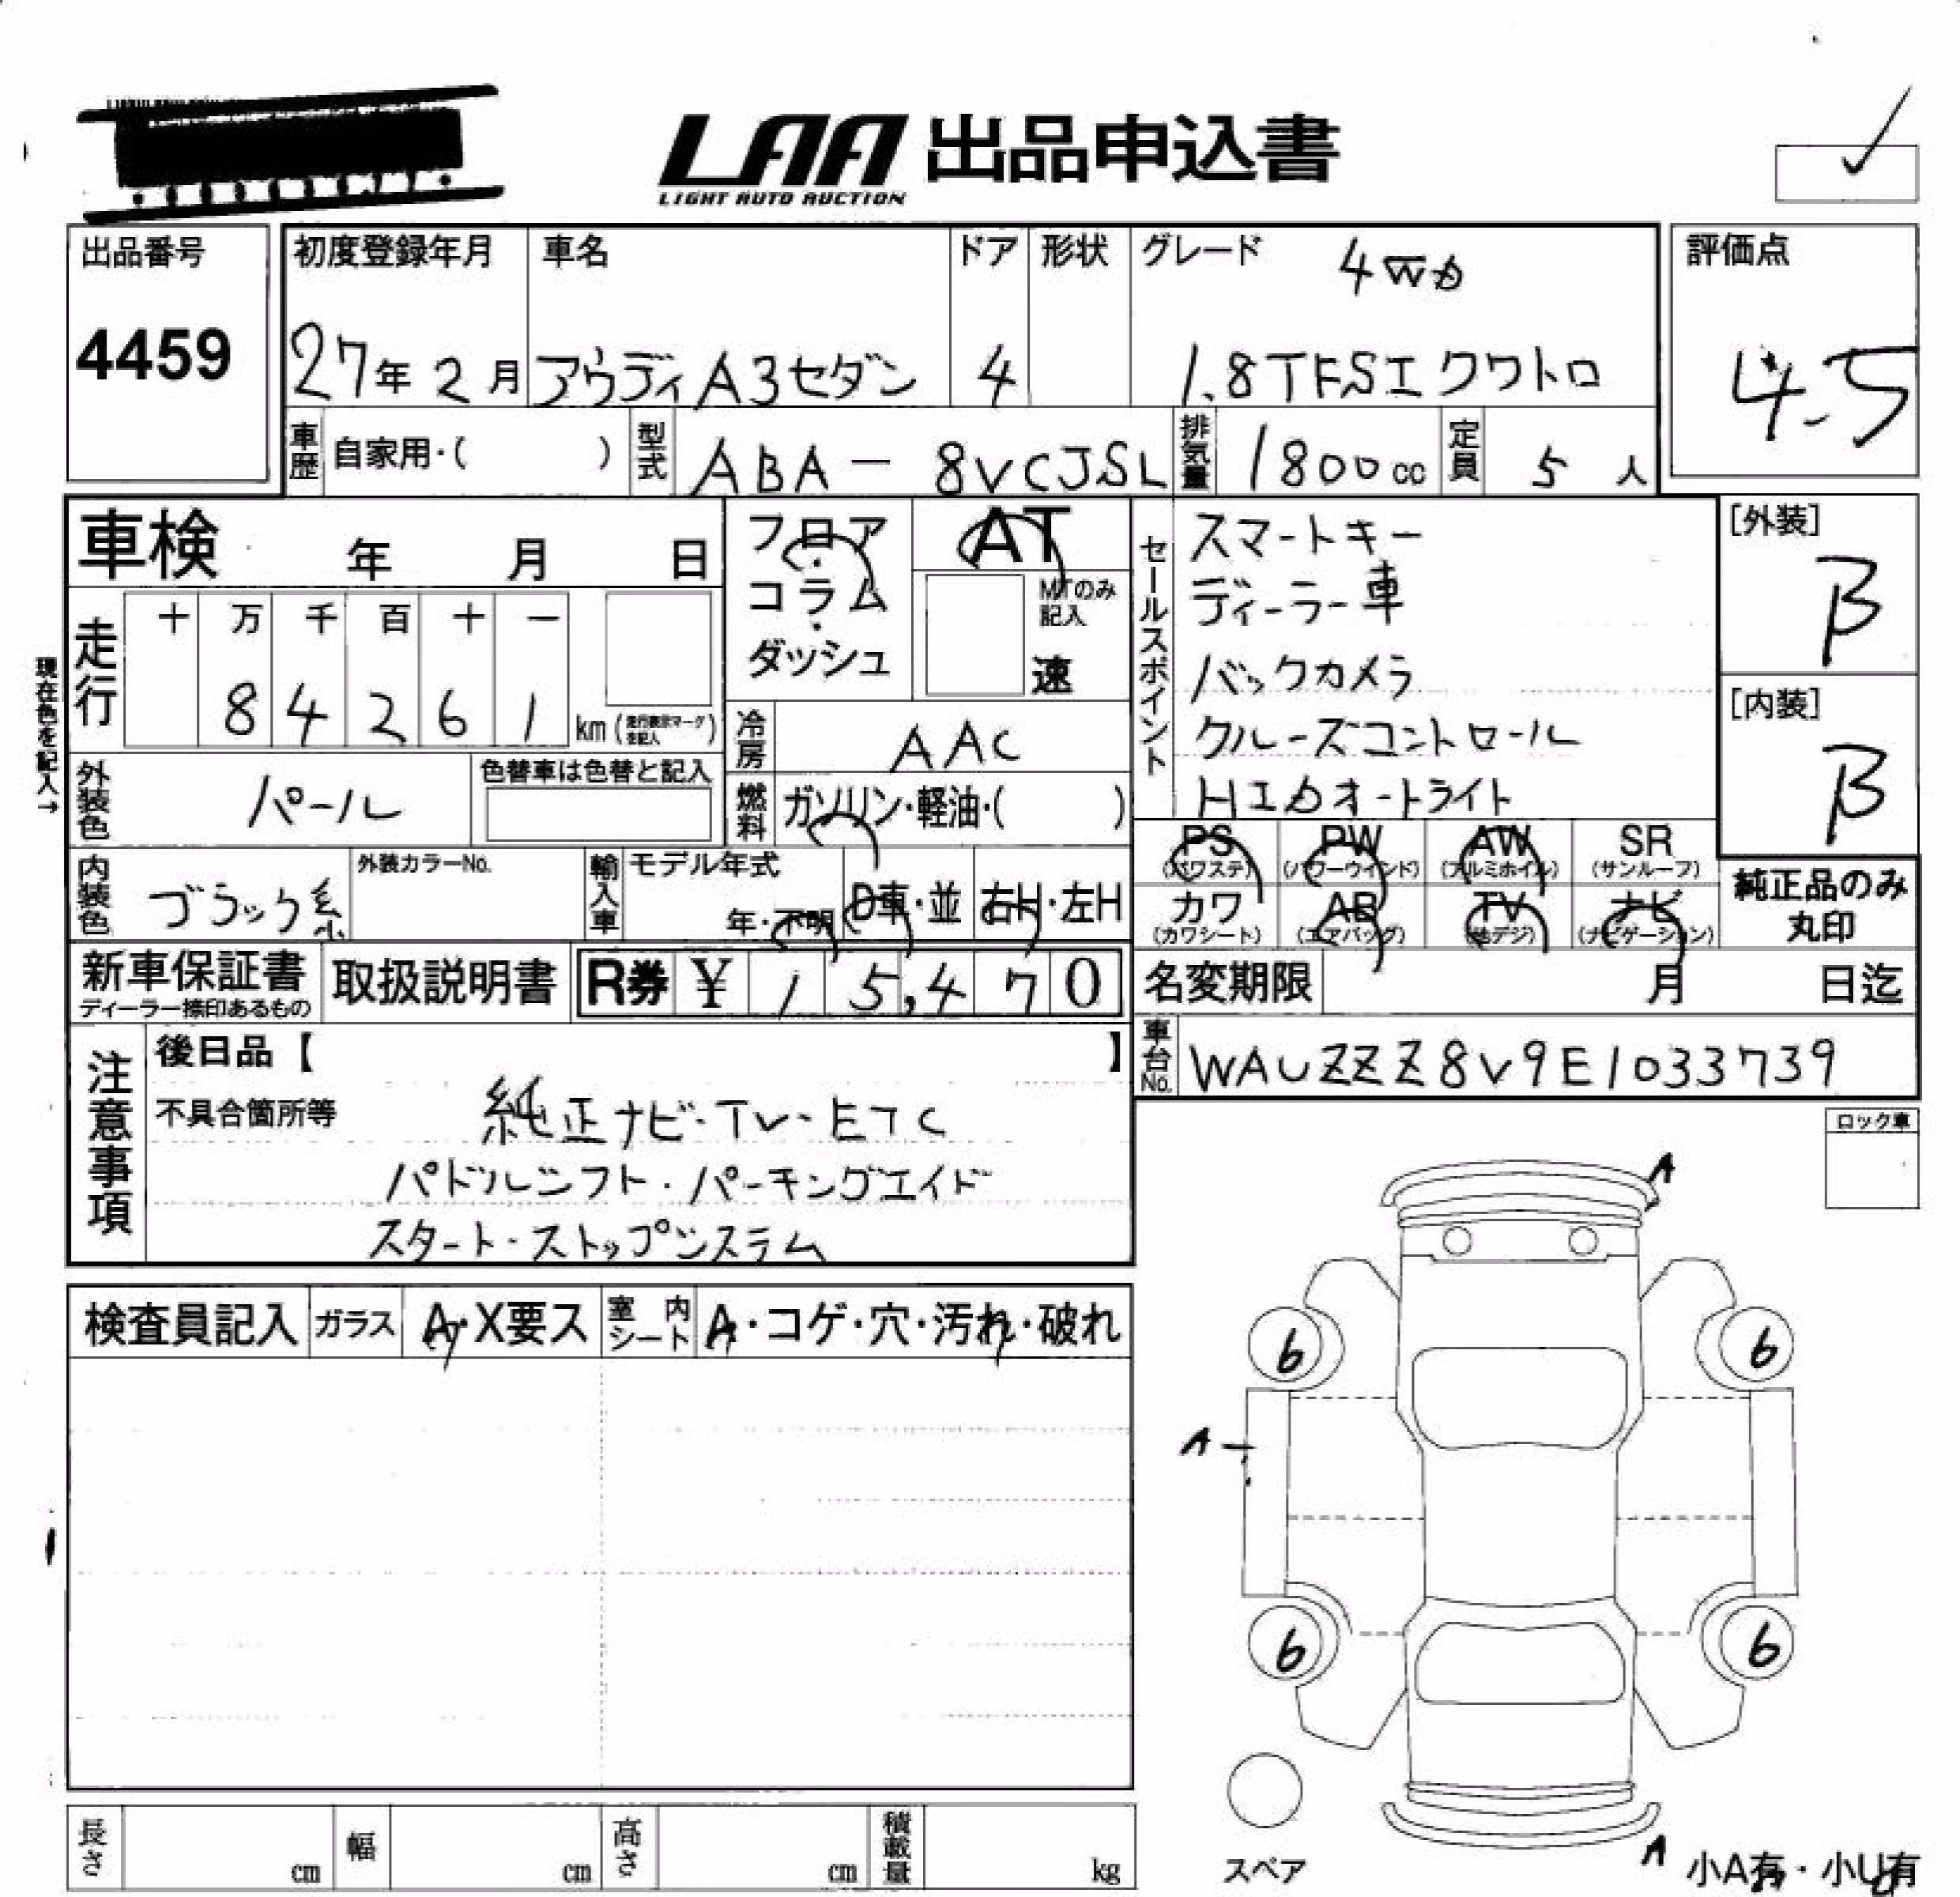 LAA 出品申込書
LIGHT AUTO AUCTION
出品番号
4459
初度登録年月
27年2月
車名
アウディA3セダン
ドア
4
形状
グレード
4WD
1.8TFSIクワトロ
評価点
4.5
車歴 自家用・( )
型式 ABA-8VCJSL
排気量 1800cc
定員 5人
車検 年 月 日
フロア・コラム・ダッシュ
AT
MTのみ記入
速
現在色を記入→
走行
十 万 千 百 十 一
8 4 2 6 1 km
冷房 AAC
外装色 パール
色替車は色替と記入
燃料 ガソリン・軽油・( )
セールスポイント
スマートキー
ディーラー車
バックカメラ
クルーズコントロール
HIDオートライト
[外装]
B
[内装]
B
内装色 ブラック系
外装カラーNo.
輸入車
モデル年式
年・不明
D車・並
右H・左H
PS (パワステ)
PW (パワーウインド)
AW (アルミホイル)
SR (サンルーフ)
カワ (カワシート)
AB (エアバッグ)
TV (地デジ)
ナビ (ナビゲーション)
純正品のみ丸印
新車保証書
ディーラー捺印あるもの
取扱説明書
R券 ¥ 15,470
名変期限 月 日迄
車台No. WAUZZZ8V9E1033739
注意事項
後日品【 】
不具合箇所等
純正ナビ・TV・ETC
パドルシフト・パーキングエイド
スタート・ストップシステム
ロック車
検査員記入
ガラス A・X要ス
室内シート A・コゲ・穴・汚れ・破れ
A
6 6
A
6 6
スペア
A
小A有・小U有
長さ cm
幅 cm
高さ cm
積載量 kg